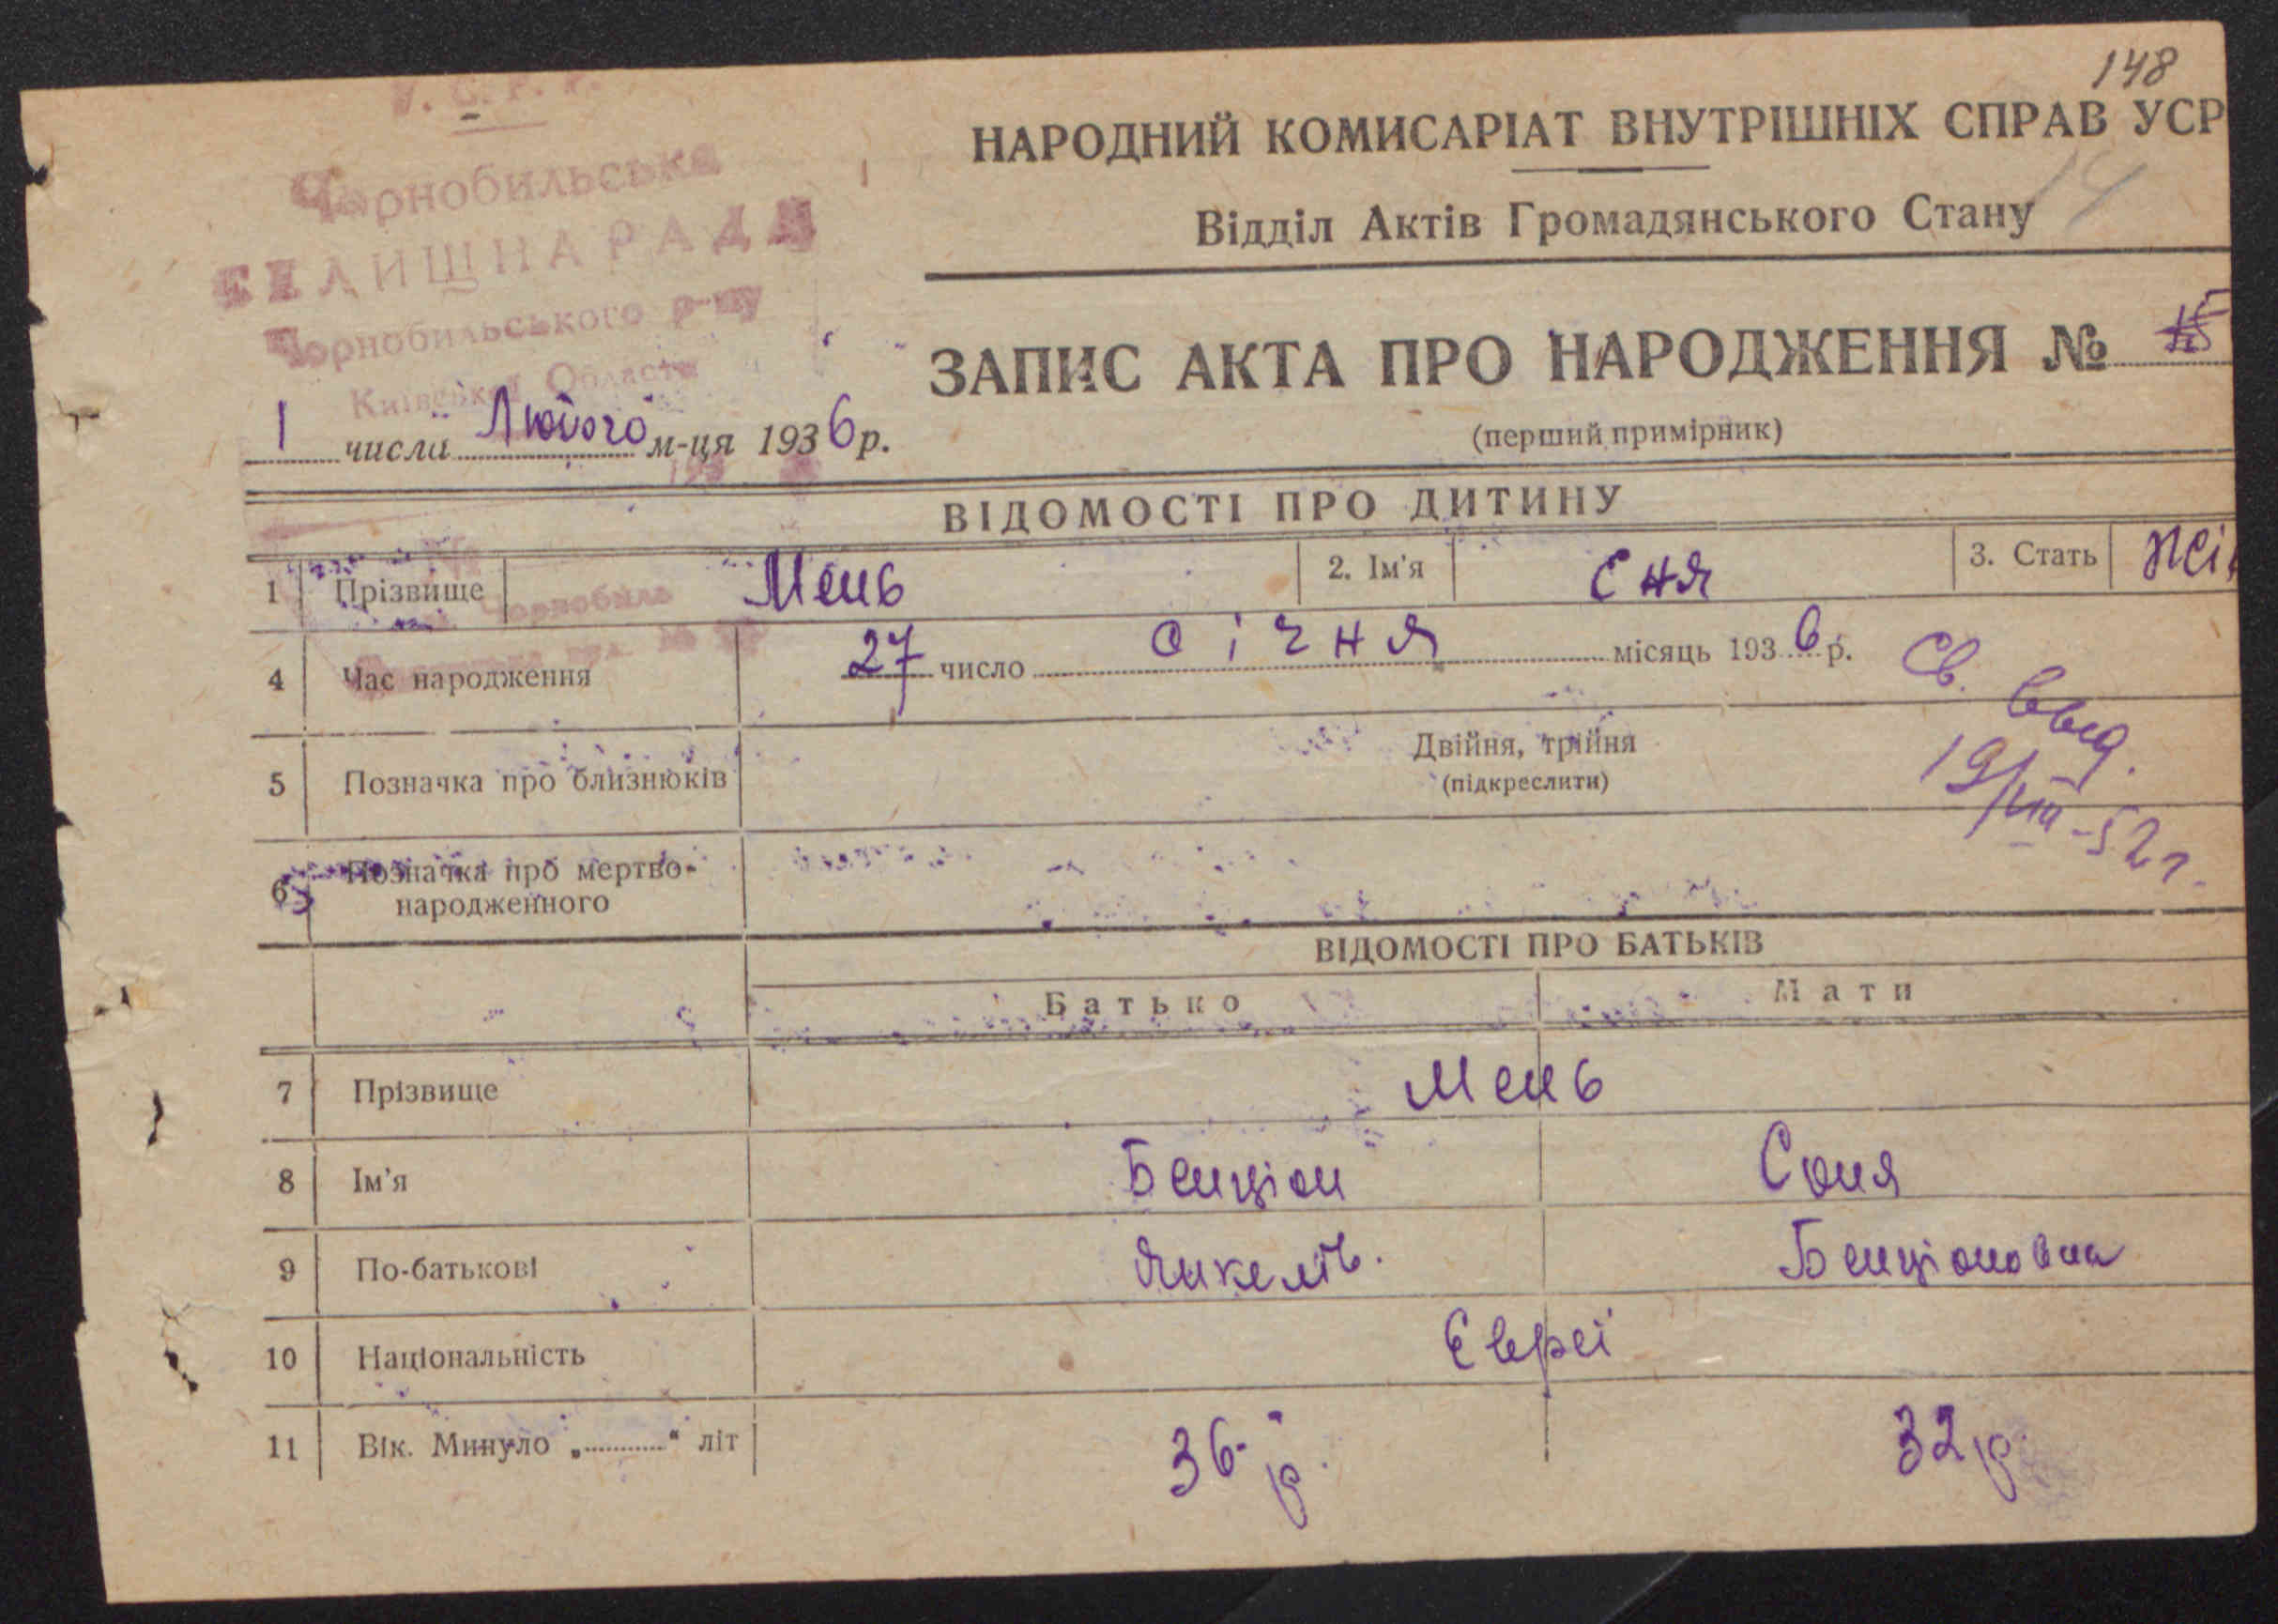 148
У. С. Р. Р.
Чорнобильська
СЕЛИЩНА РАДА
Чорнобильського р-ну
Київської Області
193
НАРОДНИЙ КОМИСАРІАТ ВНУТРІШНІХ СПРАВ УСР
14
Відділ Актів Громадянського Стану
ЗАПИС АКТА ПРО НАРОДЖЕННЯ № 15
(перший примірник)
1 числа Лютого м-ця 1936 р.
ВІДОМОСТІ ПРО ДИТИНУ
1 Прізвище Мень 2. Ім'я Єня 3. Стать жі
Чорнобиль
4 Час народження 27 число січня місяць 1936 р.
Св. выд.
19/VIII-52 г.
5 Позначка про близнюків Двійня, трійня
(підкреслити)
6 Позначка про мертво-
народженного
ВІДОМОСТІ ПРО БАТЬКІВ
Батько Мати
7 Прізвище Мень
8 Ім'я Бенціон Соня
9 По-батькові Янкелів. Бенціоновна
10 Національність Євреї
11 Вік. Минуло „..........“ літ 36 р. 32 р.